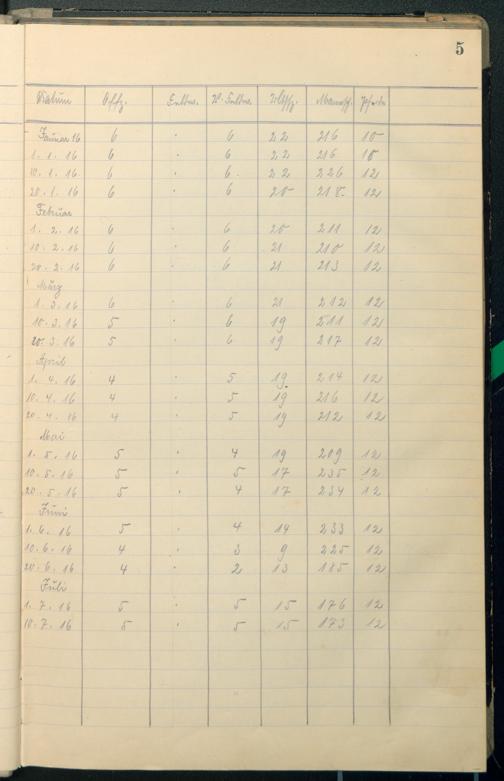 5
Datum Offz. Uoffz. Mannsch. Pferde
Januar 16 6 · 6 22 216 10
1. 1. 16 6 · 6 22 216 10
10. 1. 16 6 · 6 22 226 12
20. 1. 16 6 · 6 20 218 12
Februar
1. 2. 16 6 · 6 20 211 12
10. 2. 16 6 · 6 21 210 12
20. 2. 16 6 · 6 21 213 12
März
1. 3. 16 6 · 6 21 212 12
10. 3. 16 5 · 6 19 211 12
20. 3. 16 5 · 6 19 217 12
April
1. 4. 16 4 · 5 19 214 12
10. 4. 16 4 · 5 19 216 12
20. 4. 16 4 · 5 19 212 12
Mai
1. 5. 16 5 · 4 19 209 12
10. 5. 16 5 · 5 17 235 12
20. 5. 16 5 · 4 17 234 12
Juni
1. 6. 16 5 · 4 14 233 12
10. 6. 16 4 · 3 9 225 12
20. 6. 16 4 · 2 13 185 12
Juli
1. 7. 16 5 · 5 15 176 12
10. 7. 16 5 · 5 15 173 12